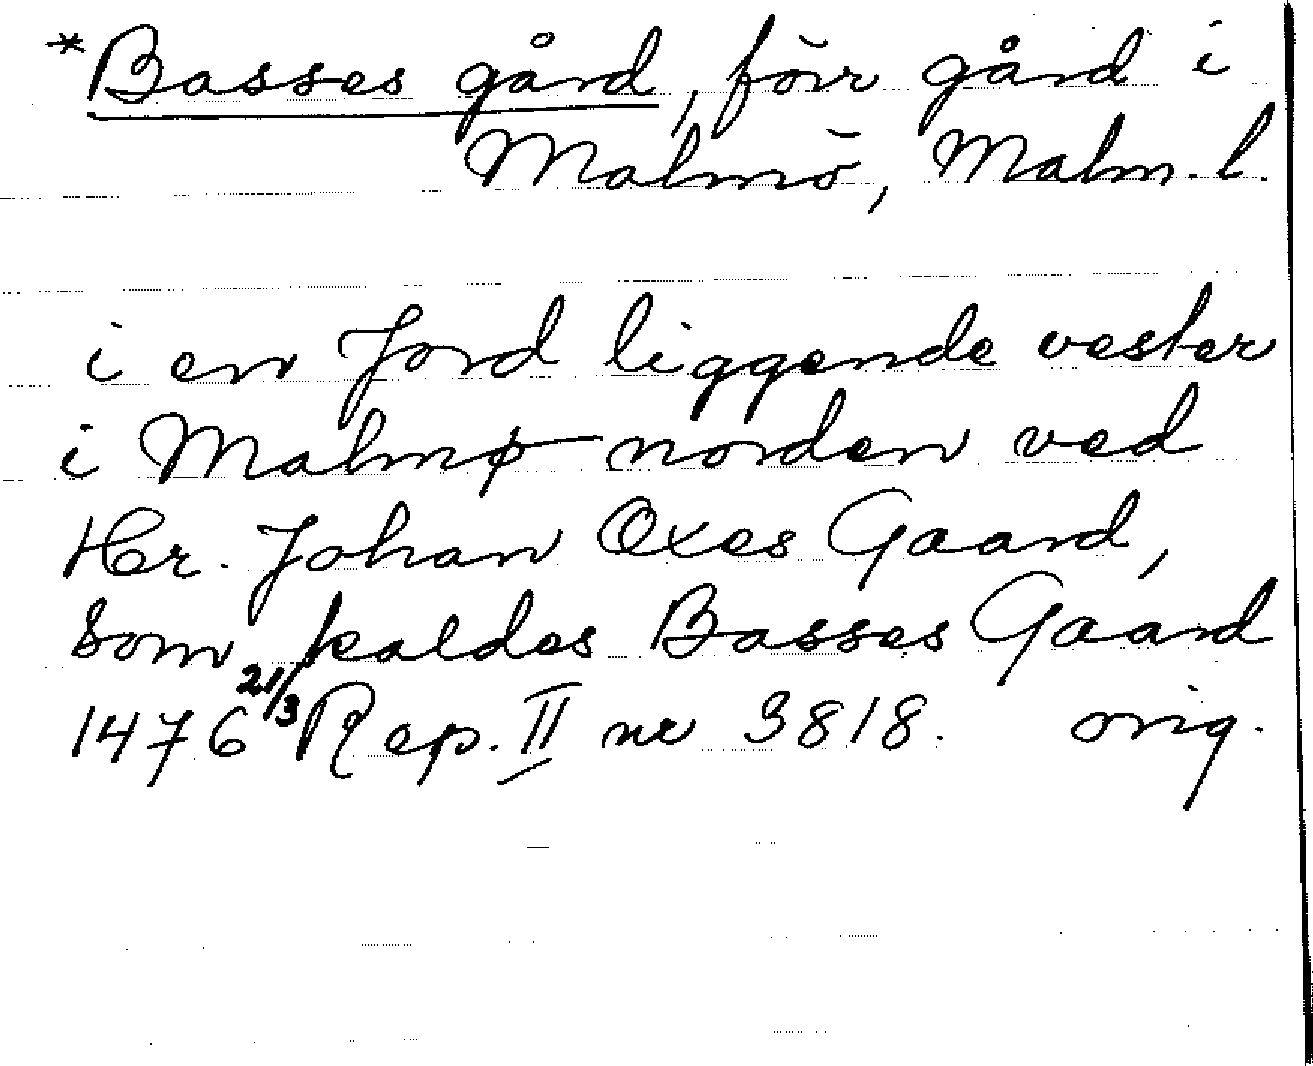 *Basses gård, förr gård i
Malmö, Malm. l.
i en Jord liggende vester
i Malmø norden ved
Her. Johan Oxes Gaard,
som kaldes Basses Gaard
1476 21/3 Rep. II nr 3818. orig.